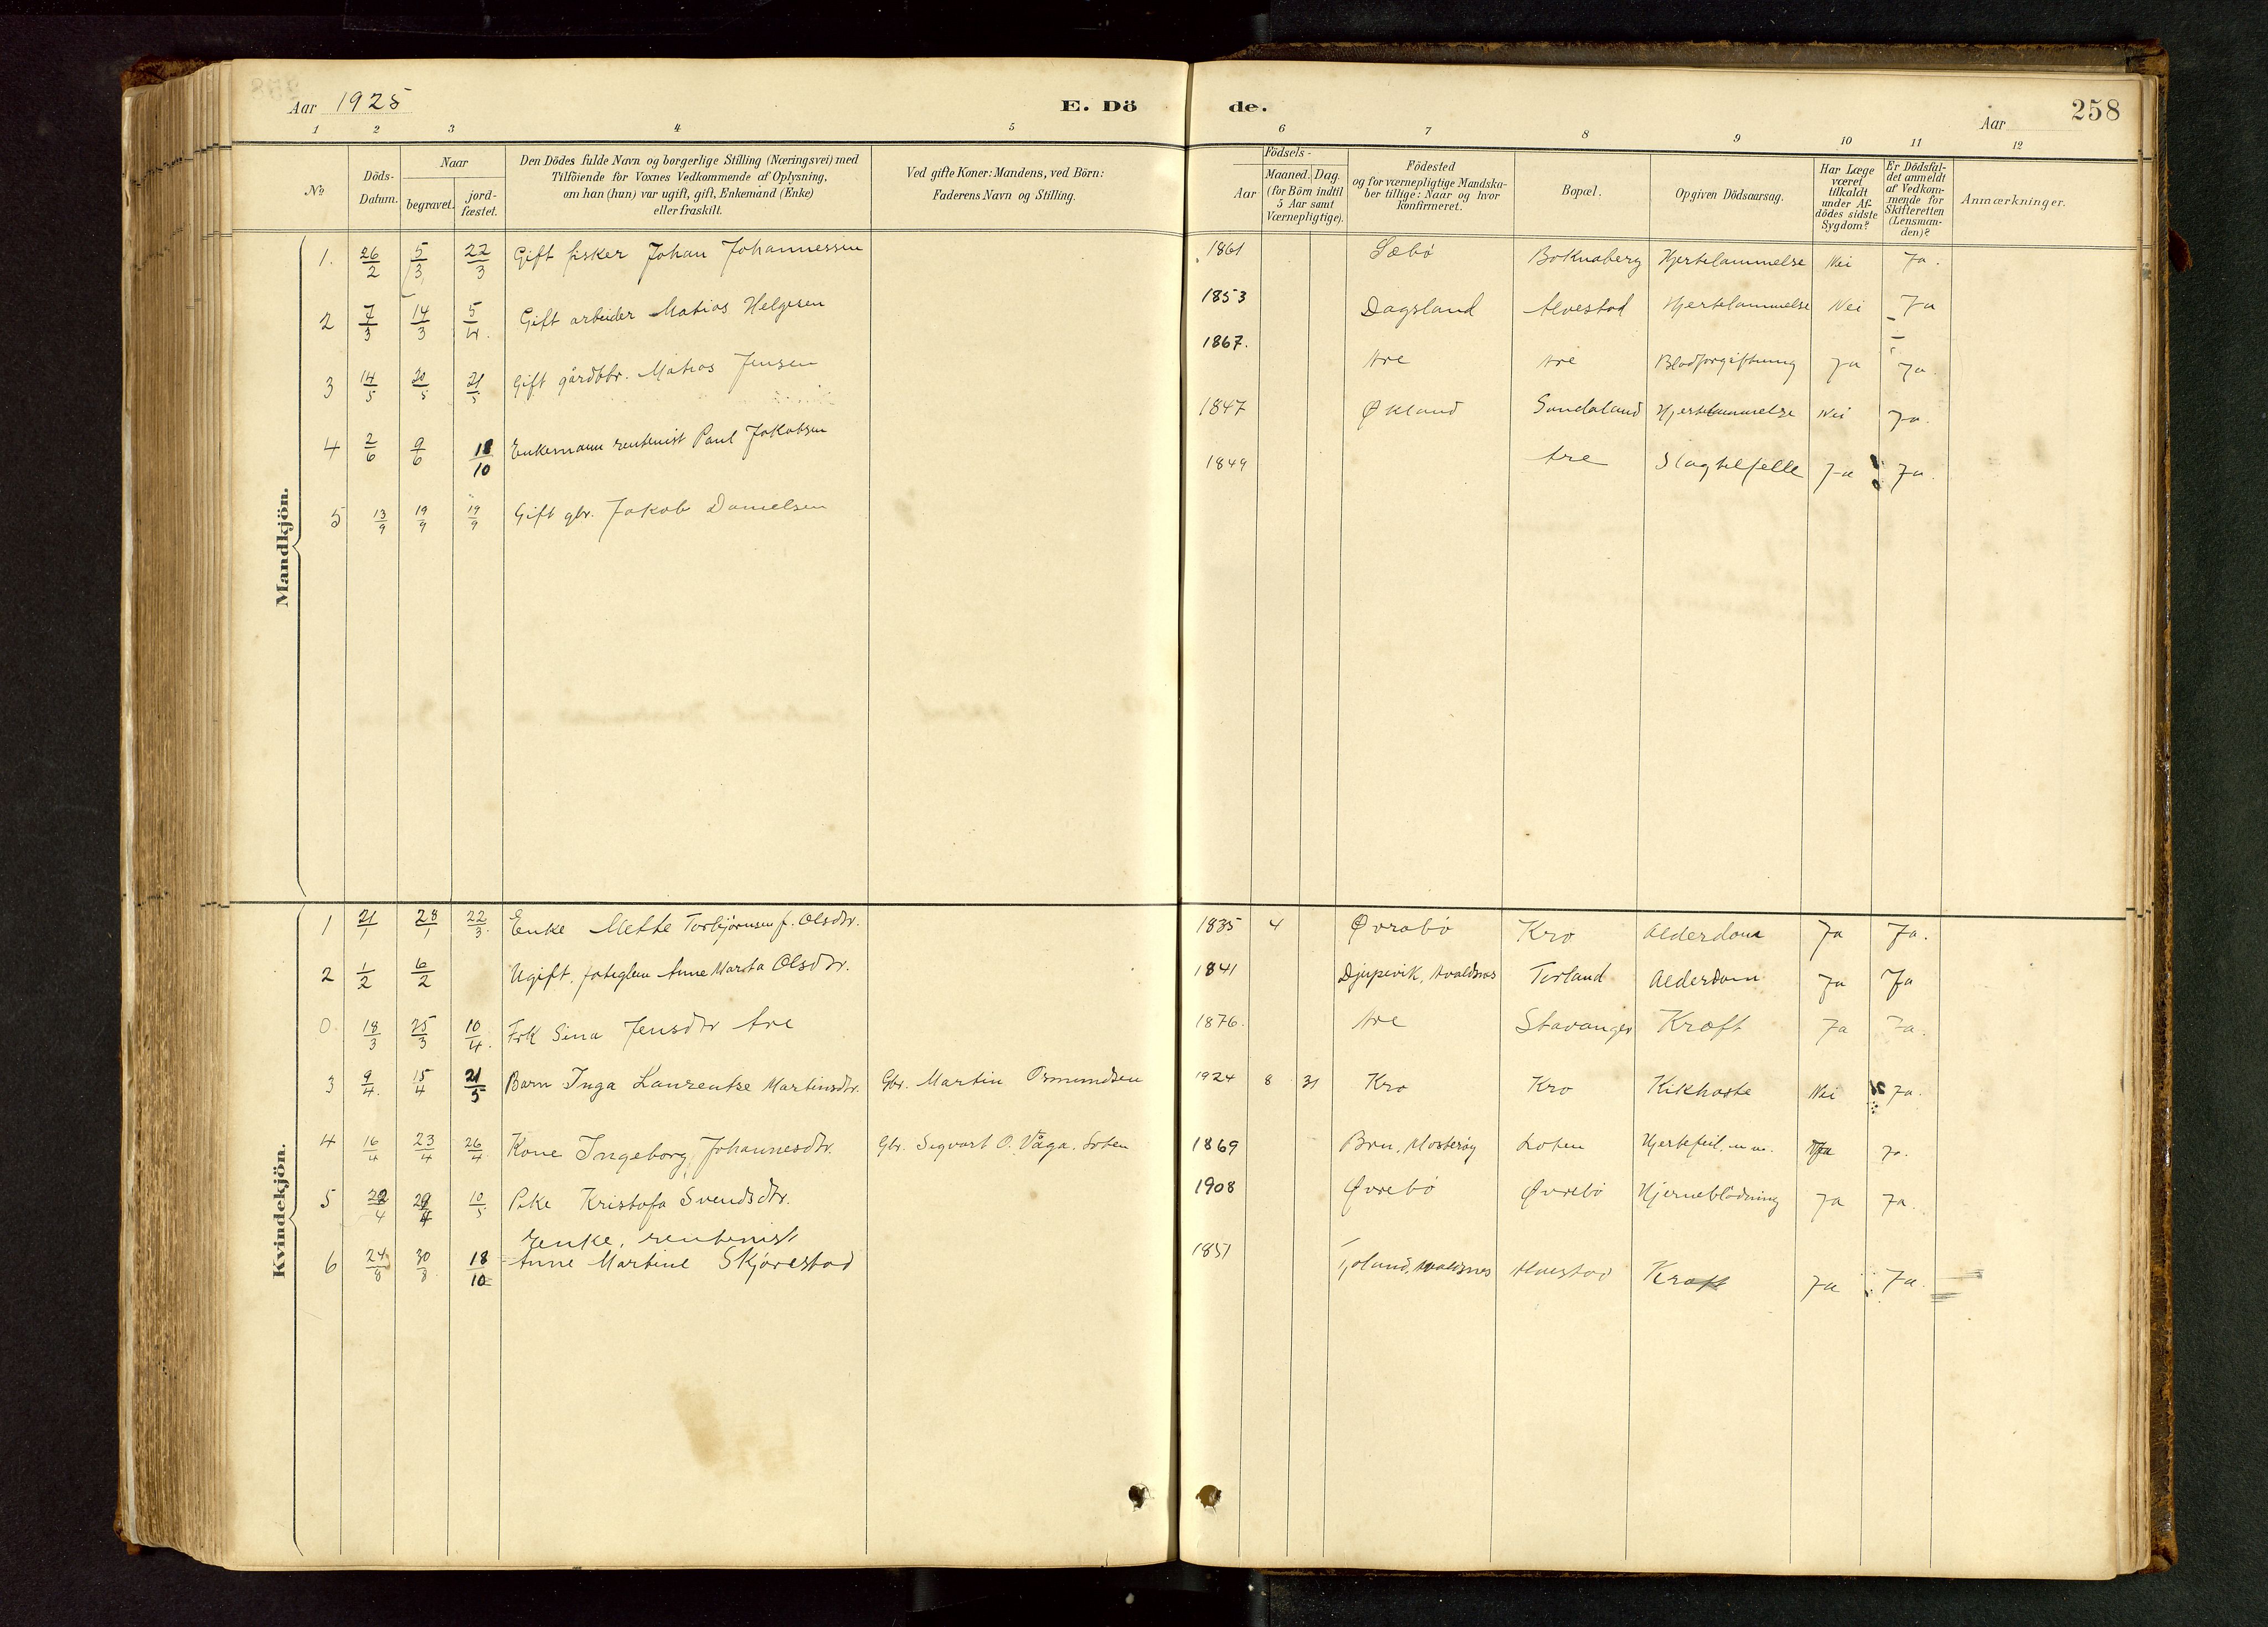 Aar 1925
E. Dö
de.
Aar
258
1 2 3 4 5 6 7 8 9 10 11 12
No
Döds-Datum.
Naar
begravet.
jord-fæstet.
Den Dödes fulde Navn og borgerlige Stilling (Næringsvei) med
Tilföiende for Voxnes Vedkommende af Oplysning,
om han (hun) var ugift, gift, Enkemand (Enke)
eller fraskilt.
Ved gifte Koner: Mandens, ved Börn:
Faderens Navn og Stilling.
Aar
Födsels-
Maaned. Dag.
(for Börn indtil
5 Aar samt
Værnepligtige).
Födested
og for værnepligtige Mandska-
ber tillige: Naar og hvor
konfirmeret.
Bopæl.
Opgiven Dödsaarsag.
Har Læge
været
tilkaldt
under Af-
dödes sidste
Sygdom?
Er Dödsfal-
det anmeldt
af Vedkom-
mende for
Skifteretten
(Lensman-
den)?
Anmærkninger.
Mandkjön.
1. 26/2 5/3 22/3 Gift fisker Johan Johannessen 1861 Sæbö Boknaberg Hjertelammelse Nei Ja.
2 7/3 14/3 5/4. Gift arbeider Matias Helgesen 1853 Dagsland Alvestad Hjertelammelse Nei Ja
3 14/5 20/5 21/5 Gift gårdbr. Matias Jensen 1867. Are Are Blodforgiftning Ja Ja.
4 2/6 9/6 18/10 Enkemann rentenist Paul Jakobsen 1847 Økland Sundaland Hjertelammelse Nei Ja.
5 13/9 19/9 19/9 Gift gbr. Jakob Danielsen 1849 Are Slagtilfelle Ja Ja.
Kvindekjön.
1 21/1 28/1 22/3. Enke Mette Torbjørnsen f. Olsdtr. 1835 4 Øvrabø Kro Alderdom Ja Ja.
2 1/2 6/2 Ugift. Anne Marta Olsdtr. 1841 Djupevik, Avaldsnes Torland Alderdom Ja Ja
0. 18/3 25/3 10/4. Frk Sina Jensdtr Are 1876. Are Stavanger Kræft Ja Ja.
3 9/4. 15/4 21/5 Barn Inga Laurentse Martinsdtr. Gbr. Martin Osmundsen 1924 8 31 Kro Kro Kikhoste Nei Ja.
4 16/4 23/4 26/4 Kone Ingeborg Johannesdtr. Gbr. Sigvart O. Våga, Loten 1869 Bru, Mosterøy Loten Hjertefeil, m.m. Ja Ja.
5 22/4 29/4 10/5 Pike Kristofa Svendsdtr. 1908 Øvrebö Øvrebö Hjerneblödning Ja Ja.
Enke, rentenist
6 24/8 30/8 18/10 Anne Martine Skjørestad 1851 Avaldsnes Alvestad Kræft Ja Ja.